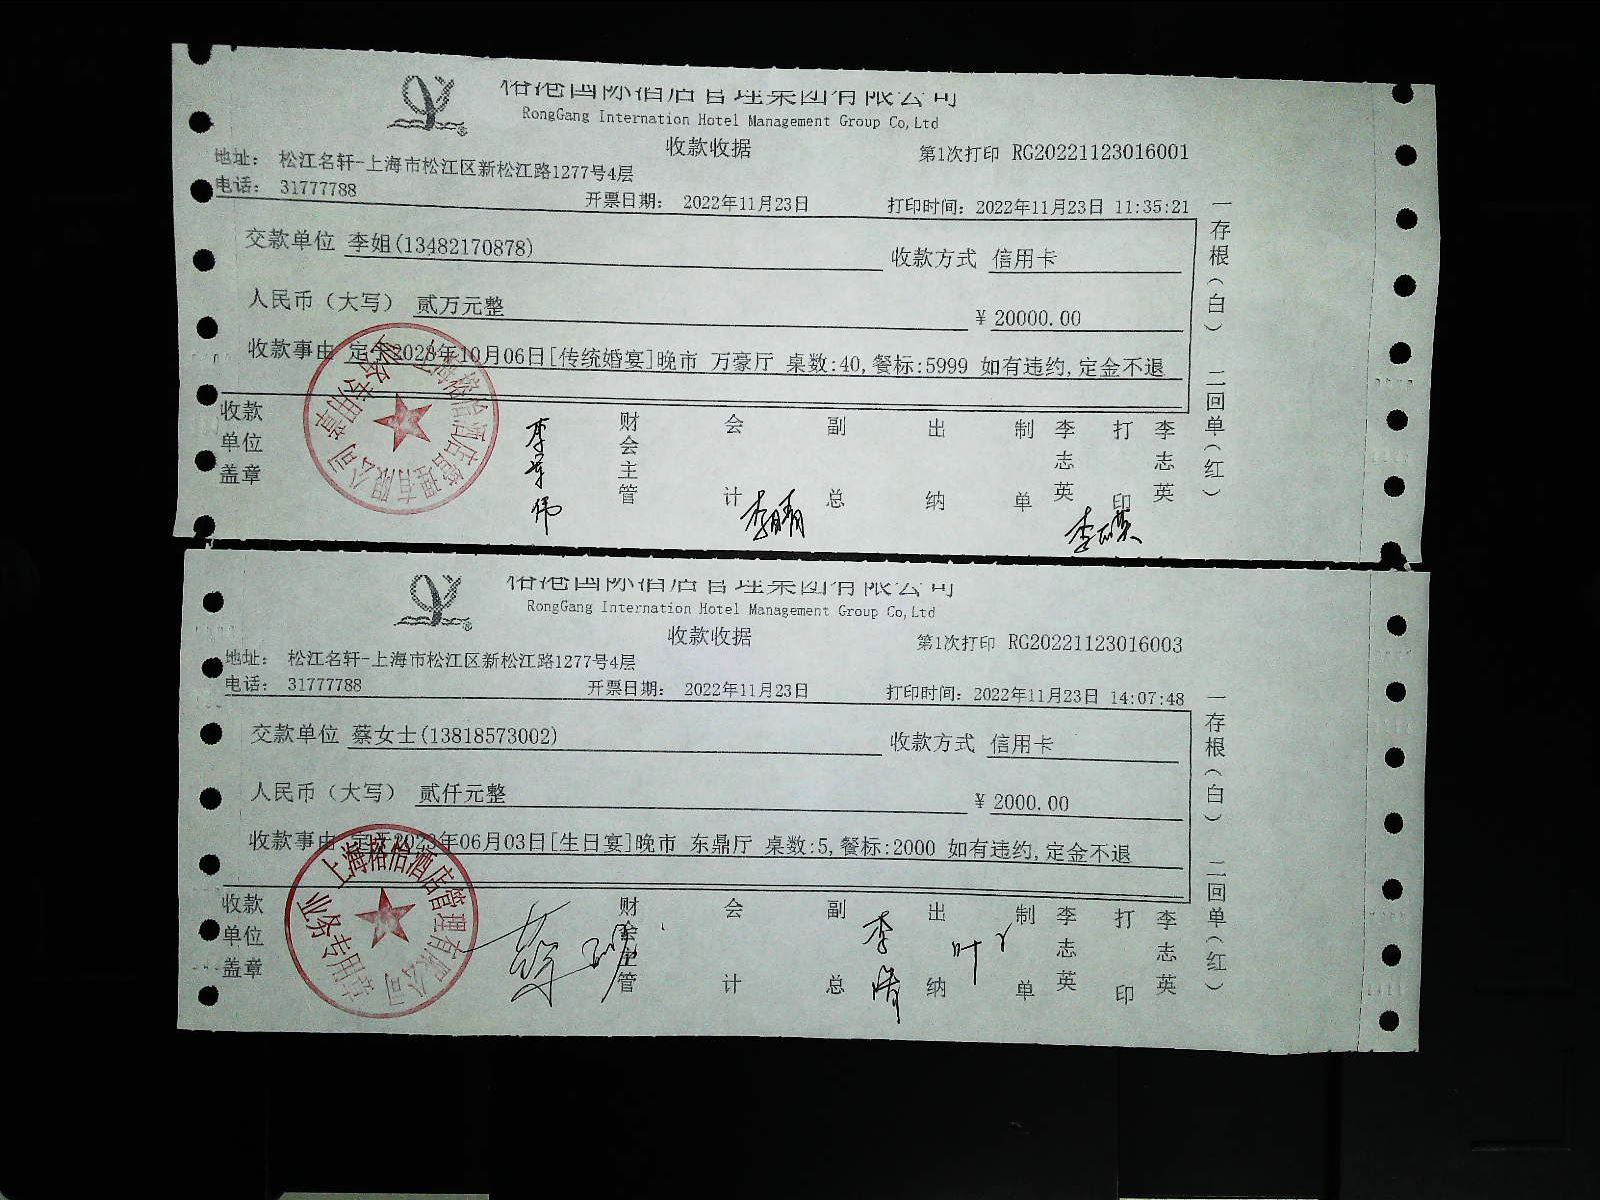 榕港国际酒店管理集团有限公司
RongGang International Hotel Management Group Co,Ltd
收款收据
第1次打印 RG20221123016001
地址： 松江名轩-上海市松江区新松江路1277号4层
电话： 31777788
开票日期： 2022年11月23日
打印时间：2022年11月23日 11:35:21
交款单位 李姐(13482170878)
收款方式 信用卡
人民币（大写） 贰万元整
¥ 20000.00
收款事由 定于2023年10月06日[传统婚宴]晚市 万豪厅 桌数:40,餐标:5999 如有违约,定金不退
收款单位盖章
财会主管
会计 李晴
副总
出纳
制单 李志英
打印 李志英
一存根（白） 二回单（红）
上海榕怡酒店管理有限公司
业务专用章
榕港国际酒店管理集团有限公司
RongGang International Hotel Management Group Co,Ltd
收款收据
第1次打印 RG20221123016003
地址： 松江名轩-上海市松江区新松江路1277号4层
电话： 31777788
开票日期： 2022年11月23日
打印时间：2022年11月23日 14:07:48
交款单位 蔡女士(13818573002)
收款方式 信用卡
人民币（大写） 贰仟元整
¥ 2000.00
收款事由 定于2023年06月03日[生日宴]晚市 东鼎厅 桌数:5,餐标:2000 如有违约,定金不退
收款单位盖章
财会主管
会计
副总
出纳
制单 李志英
打印 李志英
一存根（白） 二回单（红）
上海榕怡酒店管理有限公司
业务专用章